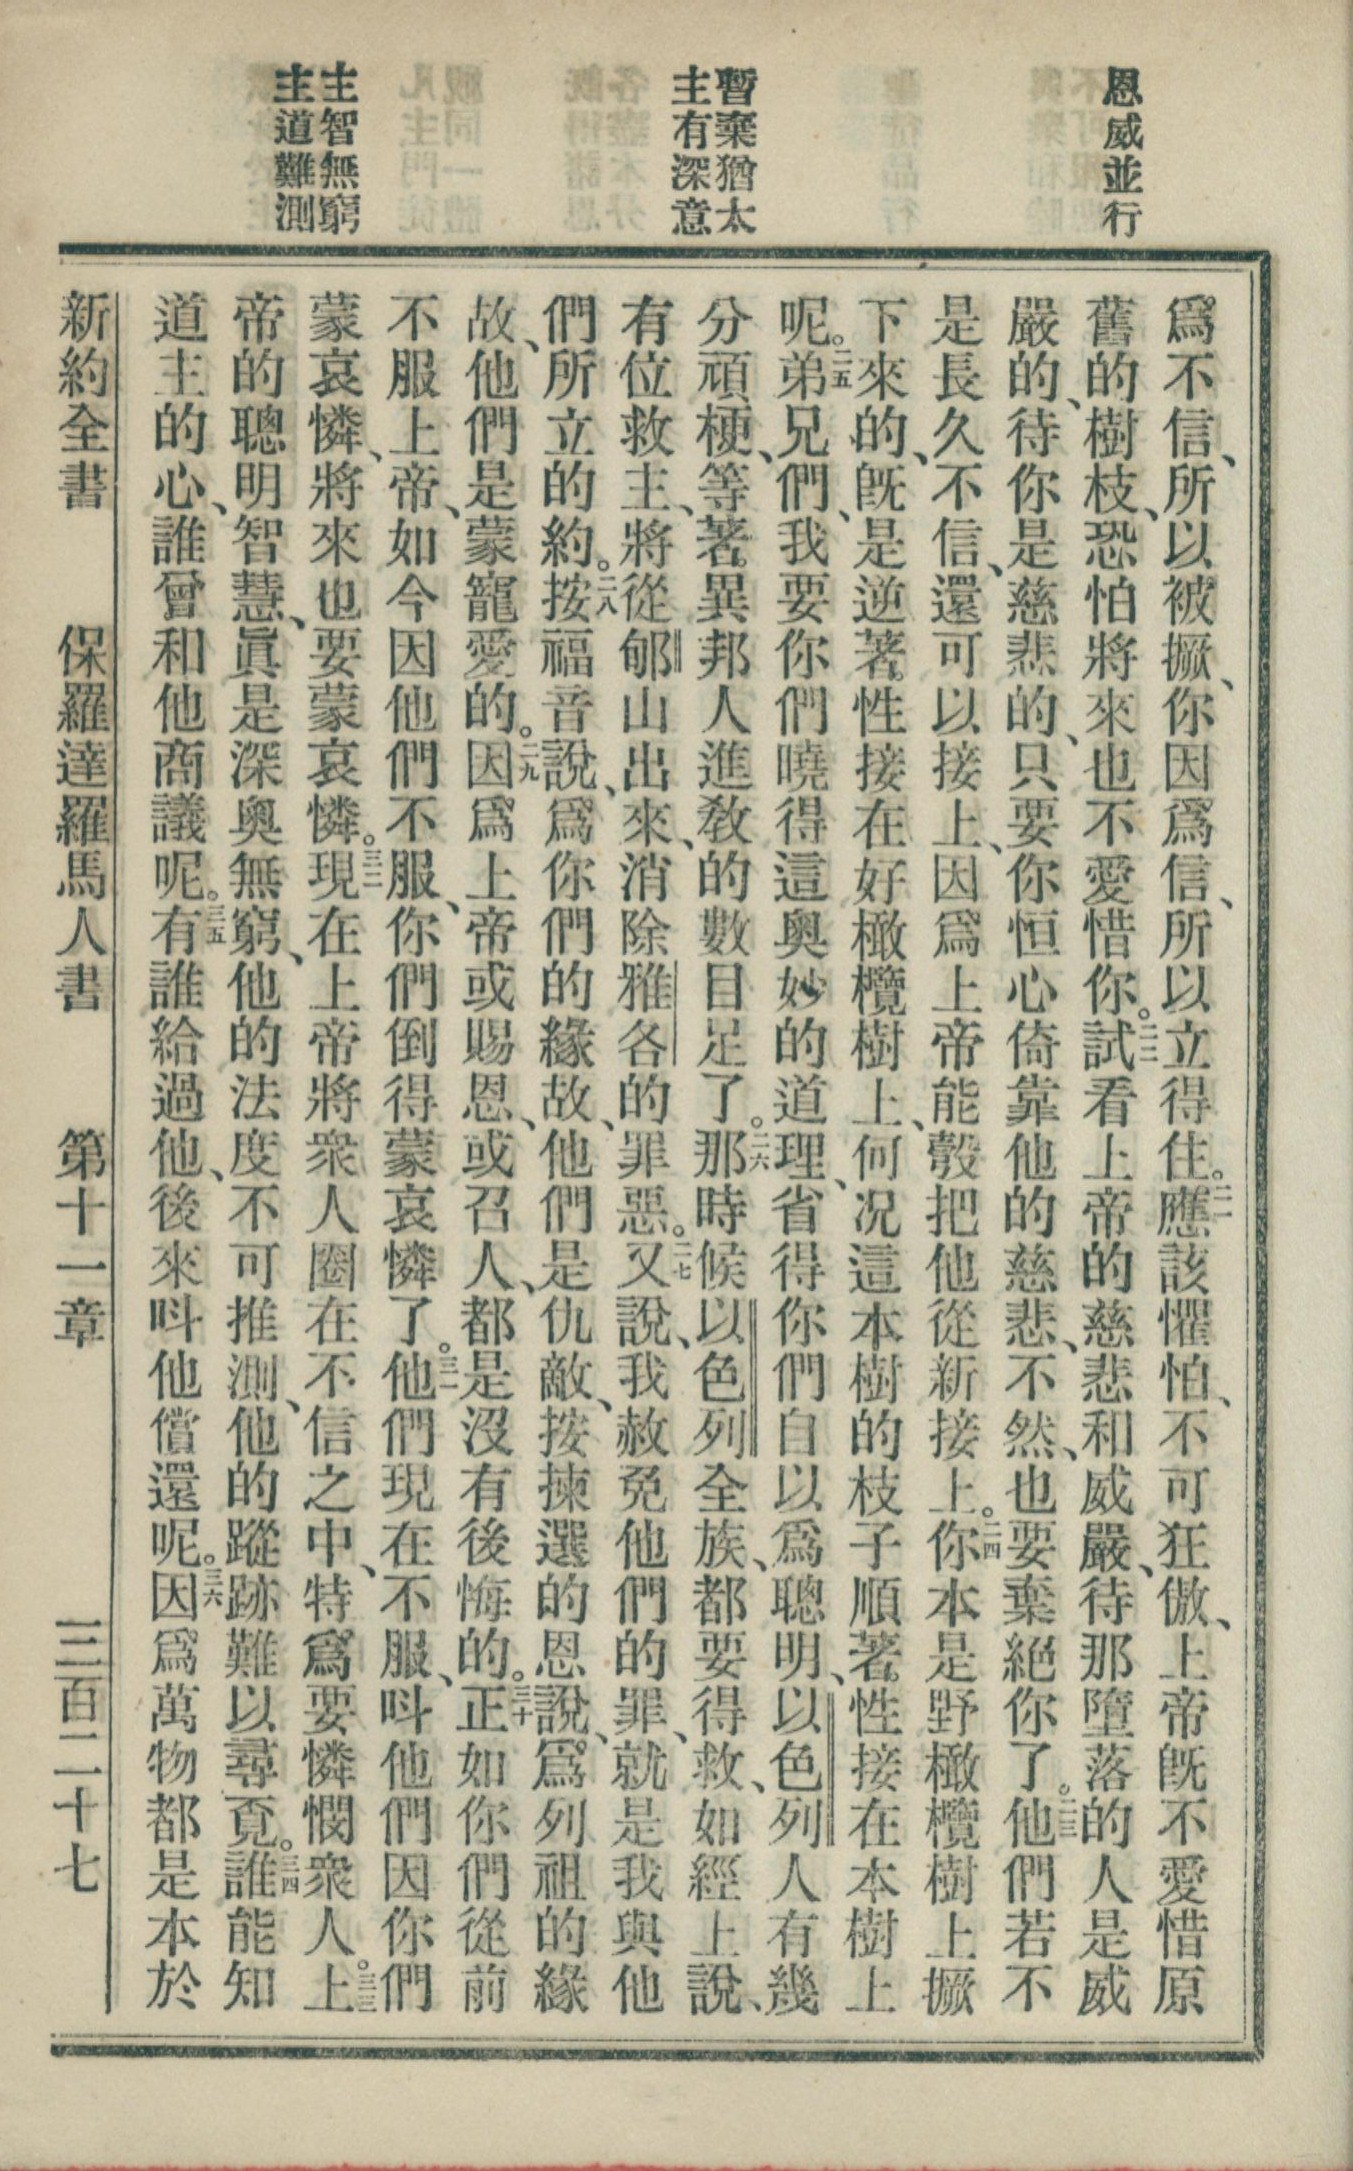 恩威並行
暫棄猶太
主有深意
主智無窮
主道難測
爲不信、所以被撅、你因爲信、所以立得住。二一應該懼怕、不可狂傲、上帝旣不愛惜原
舊的樹枝、恐怕將來也不愛惜你。二二試看上帝的慈悲和威嚴、待那墮落的人是威
嚴的、待你是慈悲的、只要你恒心倚靠他的慈悲、不然、也要棄絕你了。二三他們若不
是長久不信、還可以接上、因爲上帝能彀把他從新接上。二四你本是野橄欖樹上撅
下來的、旣是逆著性接在好橄欖樹上、何况這本樹的枝子順著性接在本樹上
呢。二五弟兄們、我要你們曉得這奧妙的道理、省得你們自以爲聰明、以色列人有幾
分頑梗、等著異邦人進敎的數目足了。二六那時候以色列全族、都要得救、如經上說、
有位救主、將從郇山出來、消除雅各的罪惡。二七又說、我赦免他們的罪、就是我與他
們所立的約。二八按福音說、爲你們的緣故、他們是仇敵、按揀選的恩說、爲列祖的緣
故、他們是蒙寵愛的。二九因爲上帝或賜恩、或召人、都是沒有後悔的。三十正如你們從前
不服上帝、如今因他們不服、你們倒得蒙哀憐了。三一他們現在不服、呌他們因你們
蒙哀憐、將來也要蒙哀憐。三二現在上帝將衆人圈在不信之中、特爲要憐憫衆人。三三上
帝的聰明智慧、眞是深奧無窮、他的法度不可推測、他的蹤跡難以尋覔。三四誰能知
道主的心、誰曾和他商議呢。三五有誰給過他、後來呌他償還呢。三六因爲萬物都是本於
新約全書 保羅達羅馬人書 第十一章 三百二十七